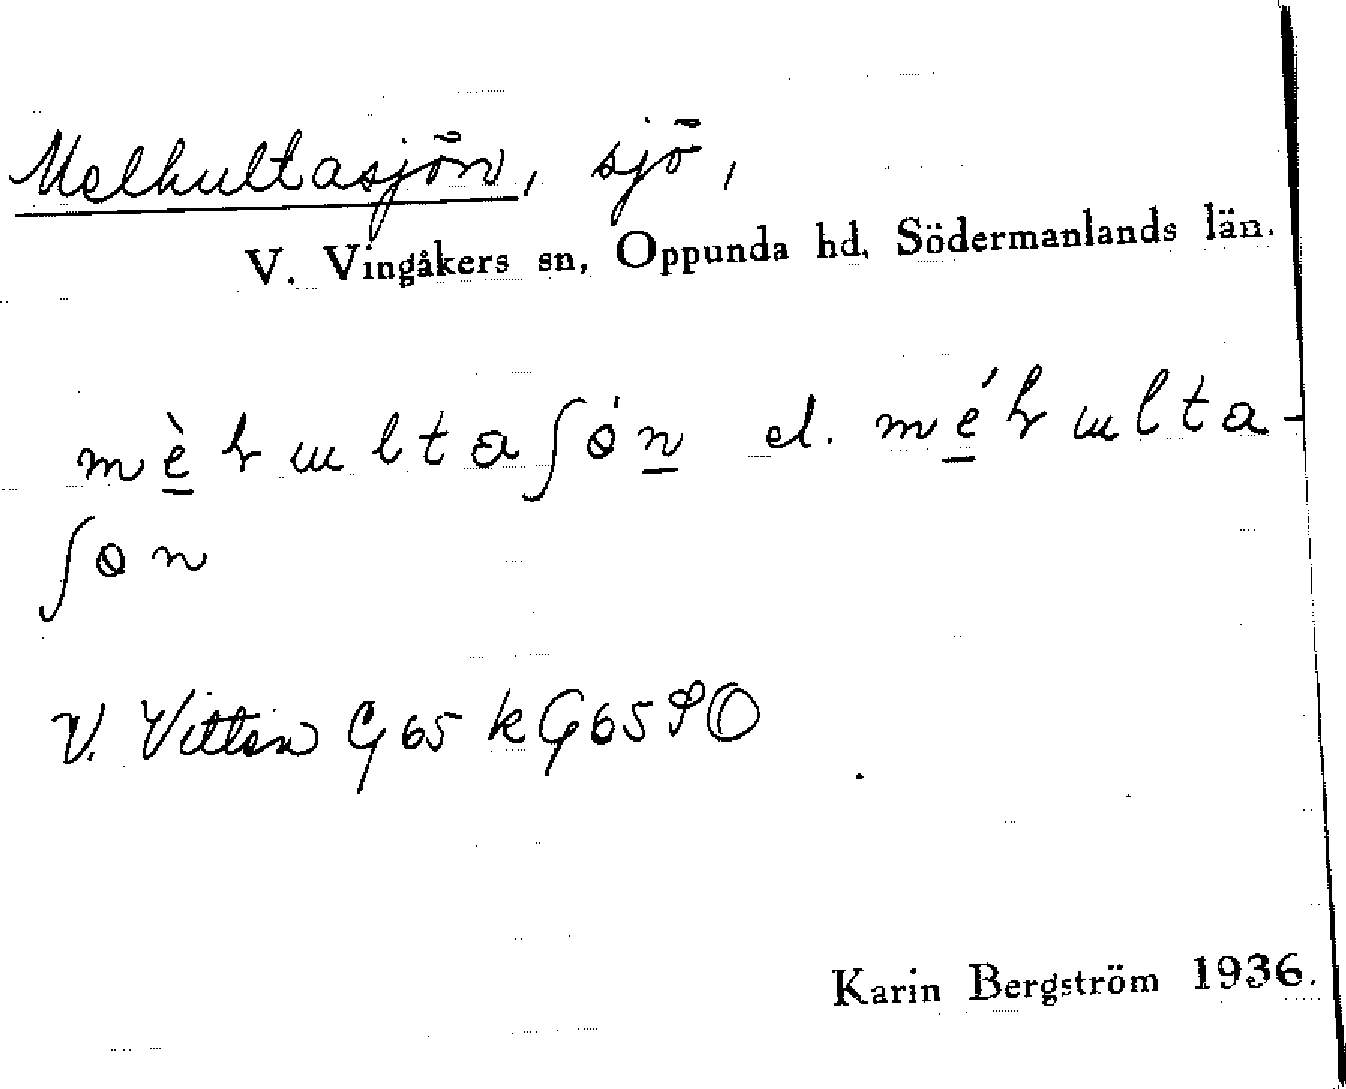 Melhultasjön, sjö,
V. Vingåkers sn, Oppunda hd, Södermanlands län.
mè̱hɯltaʃøn̲ el. mé̱hɯlta-
ʃøn
V. Vittsn G65 k G65 90
Karin Bergström 1936.